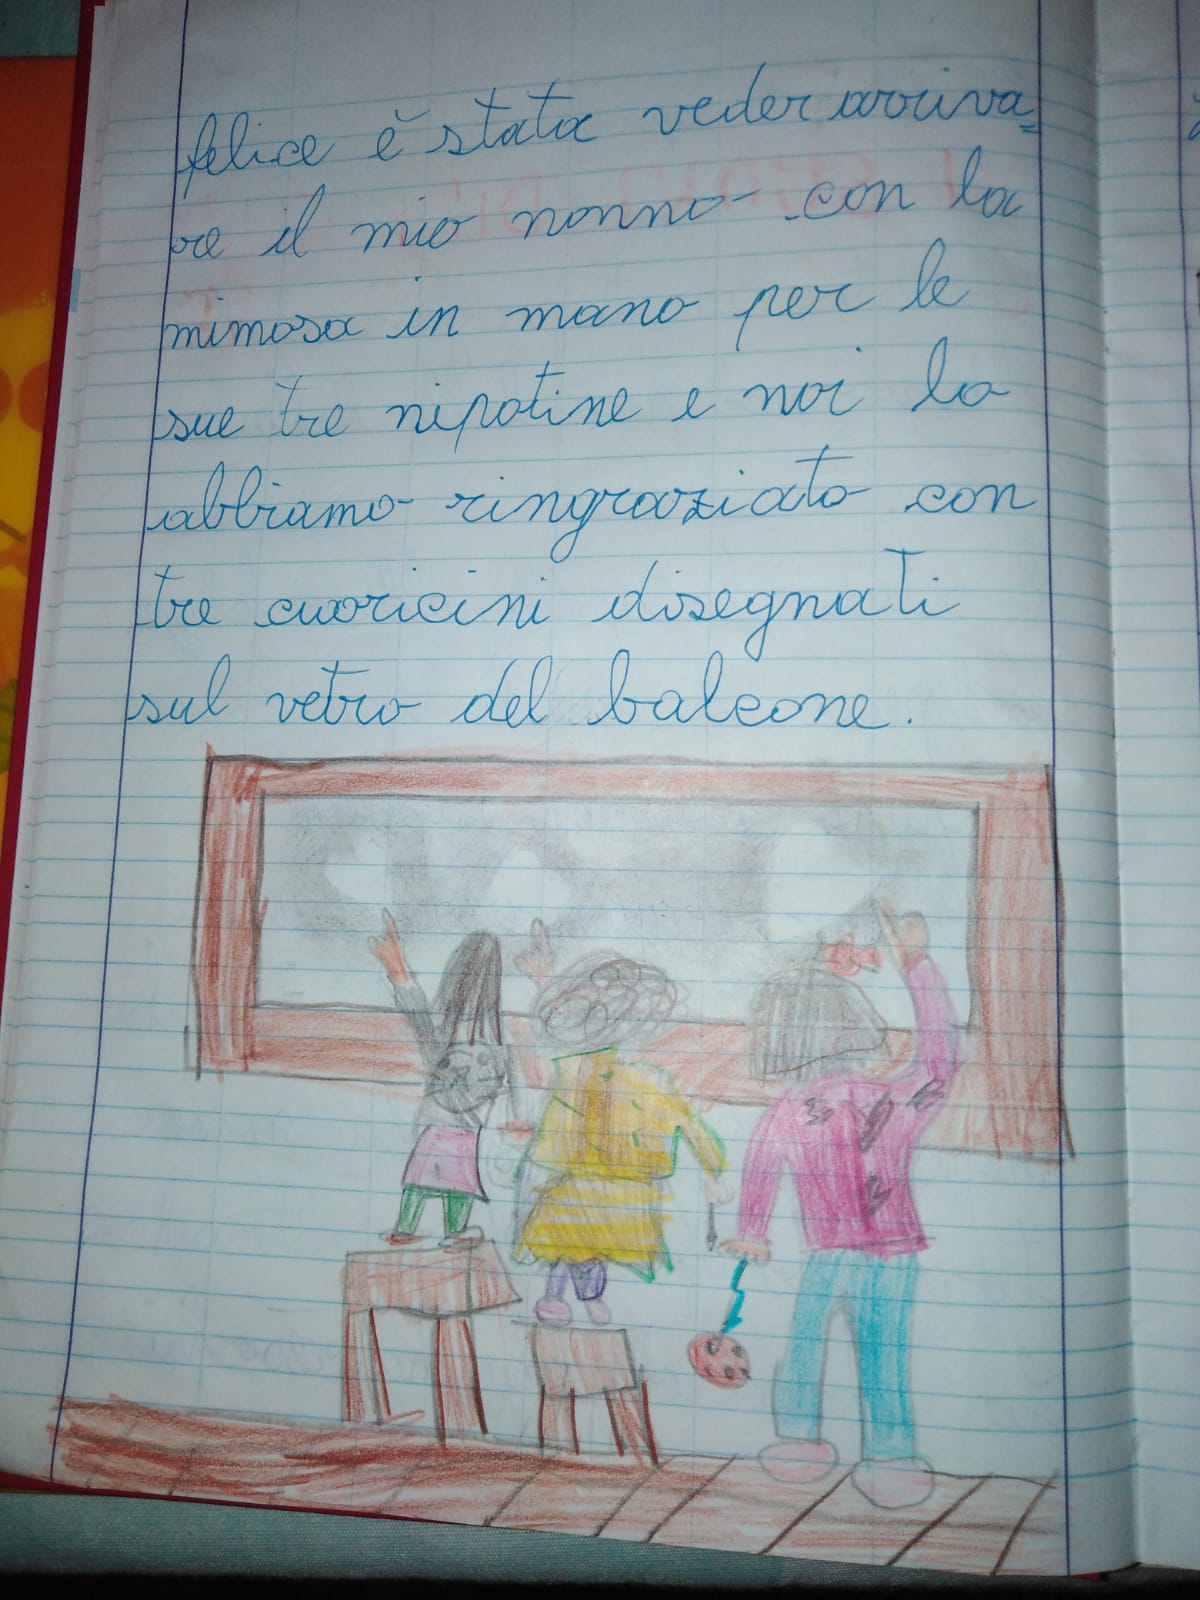 felice è stata veder arriva=
re il mio nonno con la
mimosa in mano per le
sue tre nipotine e noi lo
abbiamo ringraziato con
tre cuoricini disegnati
sul vetro del balcone.